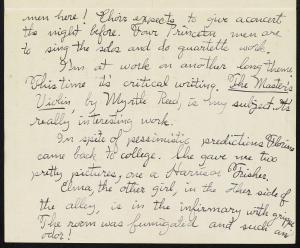 men here! Choir expects to give a concert
the night before. Four Princeton men are
to sing the solos and do quartette work.
I'm at work on another long theme.
This time it's critical writing. The Master's
Violin, by Myrtle Reed, is my subject. It's
really interesting work.
In spite of pessimistic predictions
came back to college. She gave me two
pretty pictures, one a Harrison Fisher.
Elma, the other girl, in the other side of
the alley, is in the infirmary with grippe.
The room was fumigated and such an
odor!